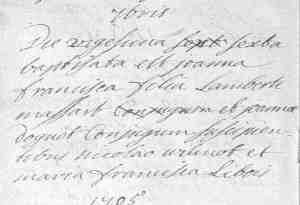 7bris
Die vigesima sext sexta
baptisata est joanna
francisca filia Lamberti
massart Conjugum et joanna
doquet Conjugum suscipien-
tibus nicolao et
maria francisca Lebois
1705